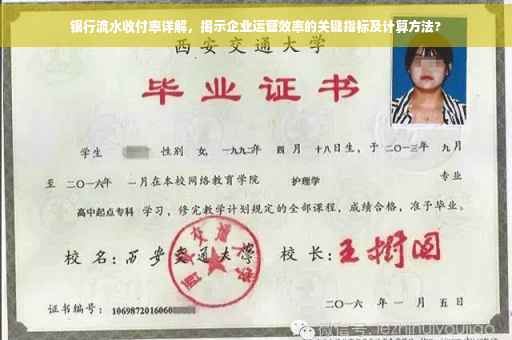 银行流水收付率详解，揭示企业运营效率的关键指标及计算方法?
西安交通大学
毕业证书
学生 性别 女, 一九九二年 四月 十八日生, 于二〇一三年 九月
至 二〇一六年 一月在本校网络教育学院 护理学 专业
高中起点专科 学习, 修完教学计划规定的全部课程, 成绩合格, 准予毕业。
校 名: 西安交通大学 校 长: 王树国
西安交通大学
证书编号: 1069872016060
二〇一六 年 一 月 五 日
微信号: jezhihuiyoujiao